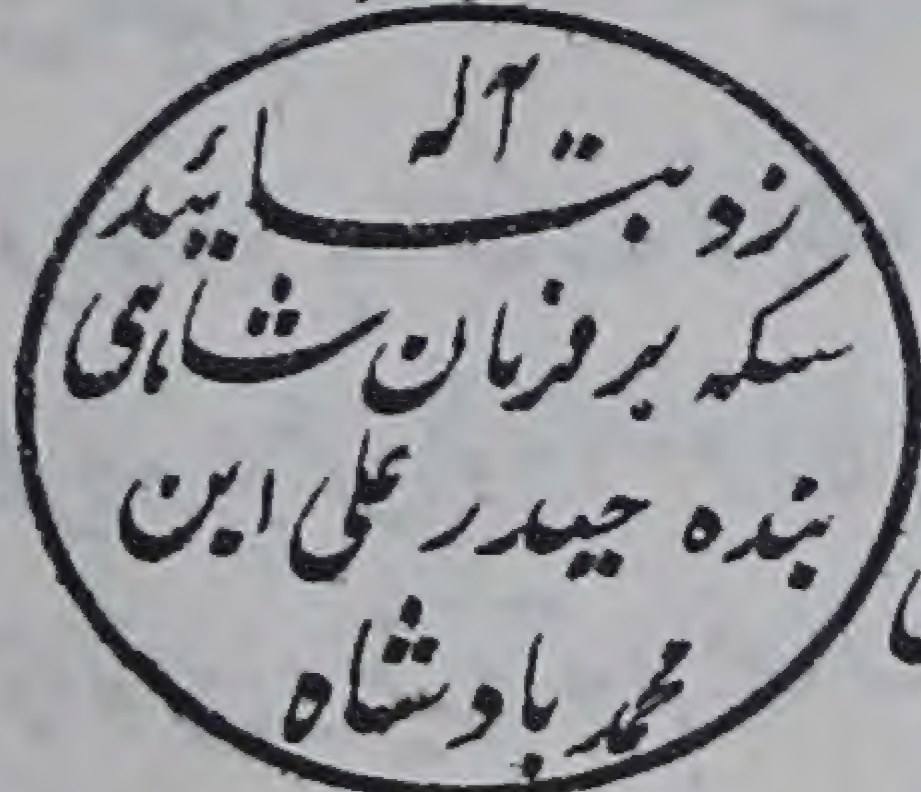 زد بتائید آله
سکه بر فرمان شاهی
بنده حیدر علی ابن
محمد بادشاه